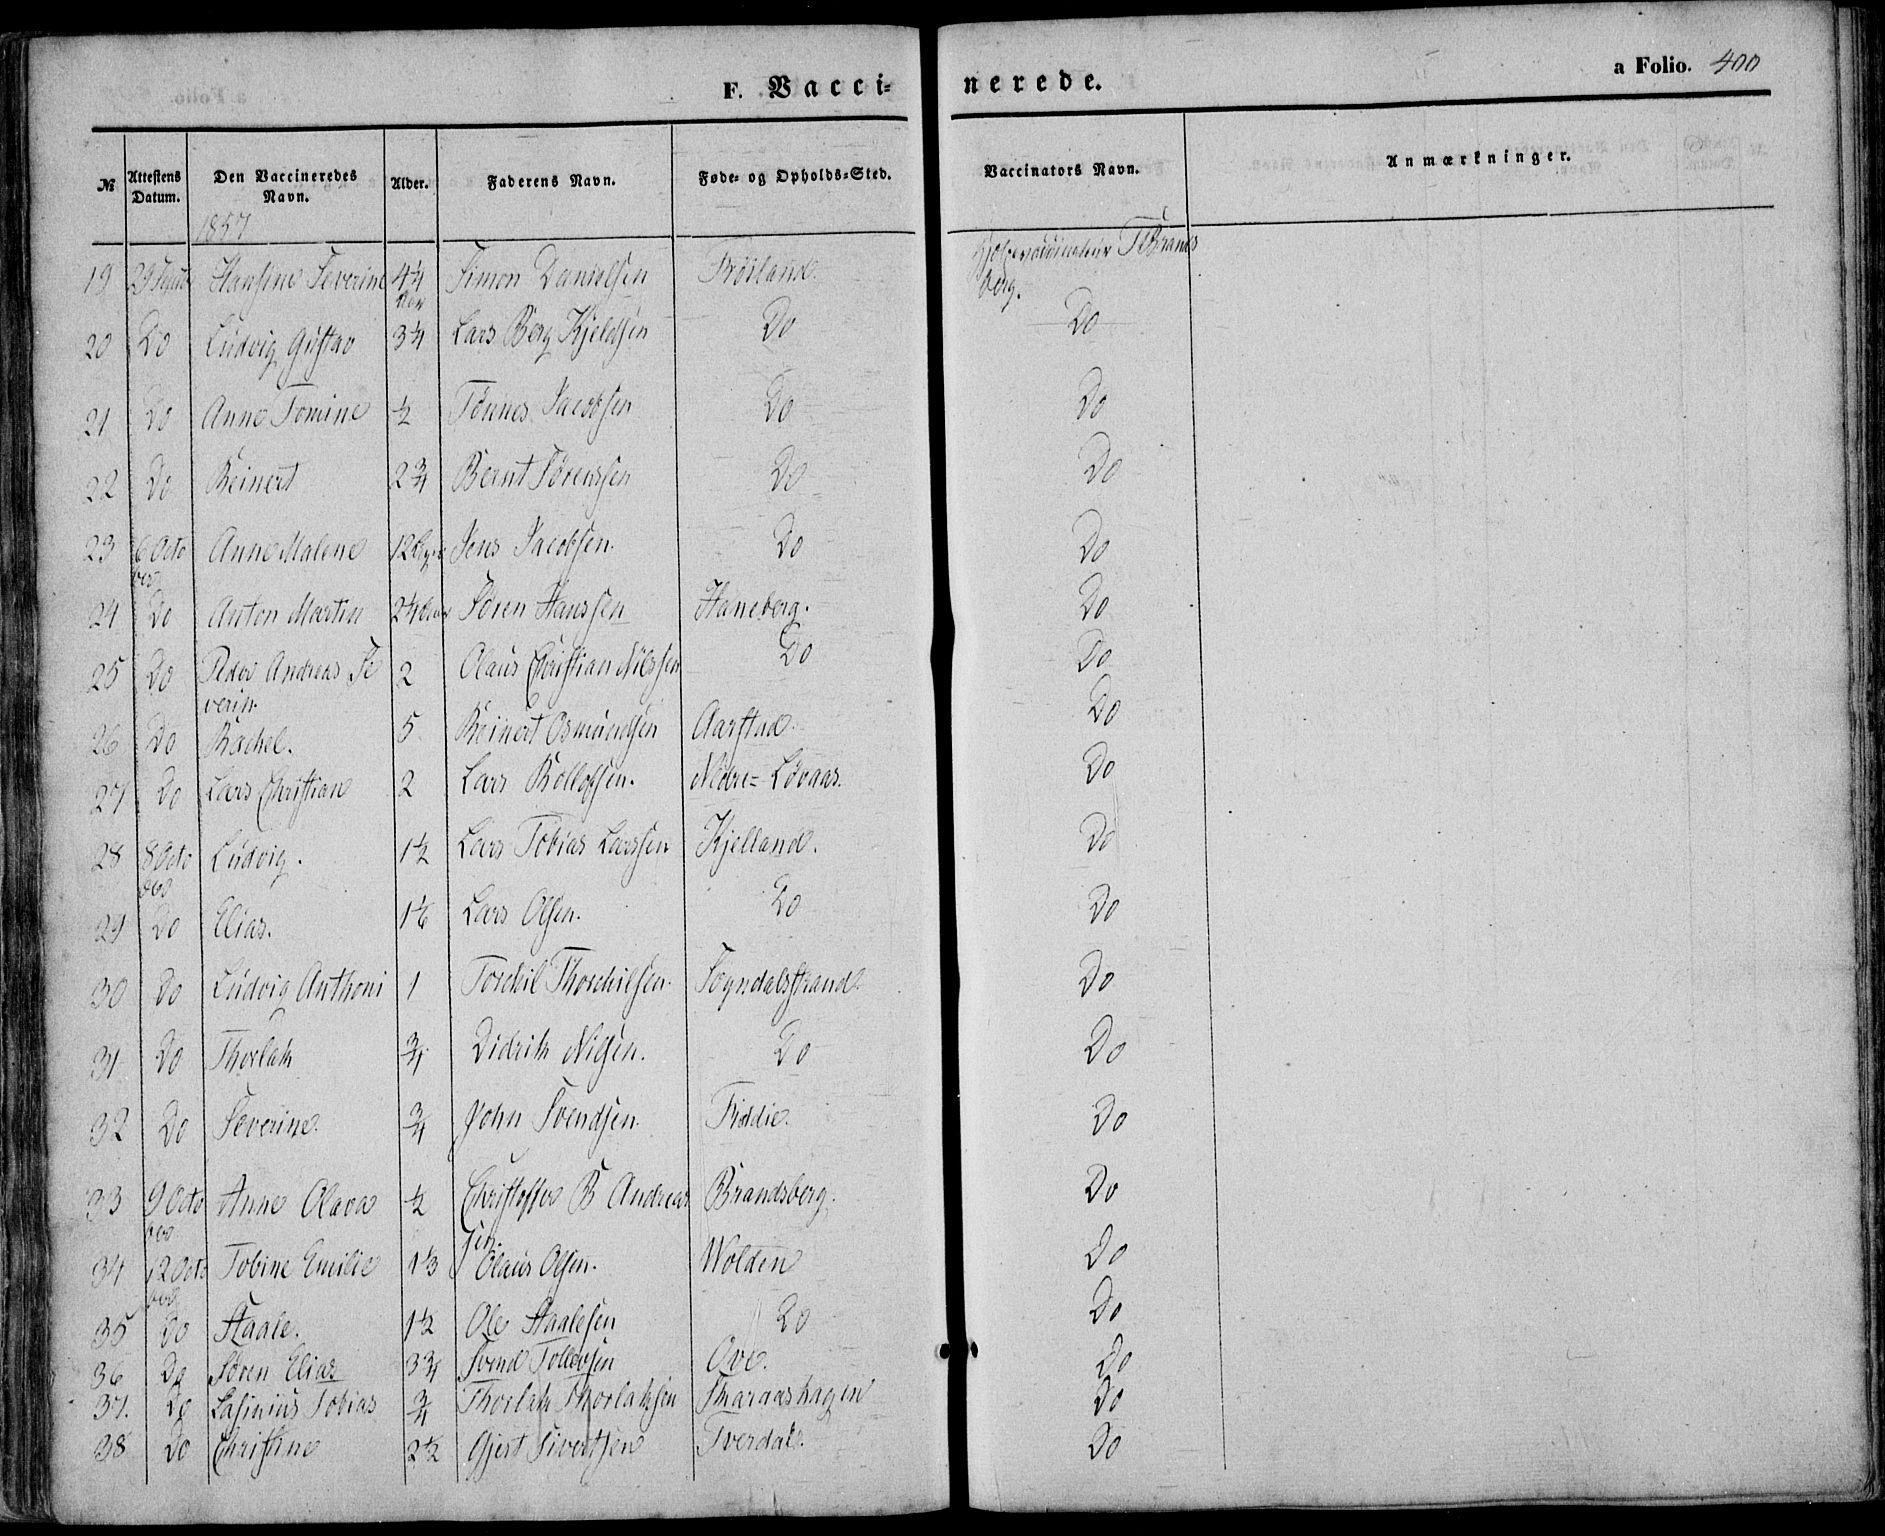 F. Vacci= nerede. a Folio. 400
№ Attestens Datum. Den Vaccineredes Navn. Alder. Faderens Navn. Føde= og Opholds=Sted. Vaccinators Navn. Anmærkninger.
1857
19 29 Hansine Severine 4¼ Aar Simon Danielsen Frøiland. Hjelpevaccinateur T Brands
berg.
20 Do Ludvig Gustav 3¼ Lars Berg Kjeldsen Do Do
21 Do Anne Tomine ½ Tønnes Jacobsen Do Do
22 Do Reinert 2¾ Bernt Sørenssen Do Do
23 6 Octo Anne Malene 12 Jens Jacobsen. Do Do
ber
24 Do Anton Martin 2¼ Aar Søren Hanssen Haneberg. Do
25 Do Peder Andreas Se 2 Olaus Christian Nilssen Do Do
verin.
26 Do Rachel. 5 Reinert Osmundsen Aarstad. Do
27 Do Lars Christian 2 Lars Rollofsen. Nedre= Løvaas. Do
28 8 Octo Ludvig. 1½ Lars Tobias Larssen Kjelland. Do
ber
29 Do Elias. 1⅙ Lars Olsen. Do Do
30 Do Ludvig Anthoni 1 Torchil Thorchilsen. Sogndalsstrand. Do
31 Do Thorlak ¾ Didrik Nilsen. Do Do
32 Do Severine. ¾ John Svendsen. Do
33 9 Octo Anne Olava ½ Christoffer B Andreas Brandsberg. Do
ber sen.
34 12 Octo Tobine Emilie 1⅓ Olaus Olsen. Wolden Do
ber
35 Do Staale. 1½ Ole Staalesen Do Do
36 Do Søren Elias 3¾ Svend Tollevsen Ove. Do
37. Do Tobias ¾ Thorlak Thorlaksen Do
38 Do Christine 2½ Gjert Sivertsen Tverdal. Do